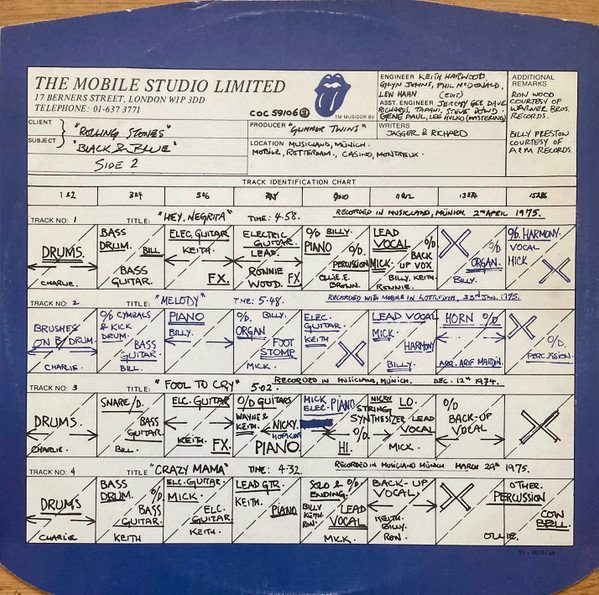 THE MOBILE STUDIO LIMITED
17 BERNERS STREET, LONDON W1P 3DD
TELEPHONE: 01-637 3771
COC 59106
TM MUSIDOR BV
ENGINEER KEITH HARWOOD,
GLYN JOHNS, PHIL McDONALD,
LEW HAHN
ASST. ENGINEER JEREMY GEE, DAVE
RICHARDS, TAPANI, STEVE DOWD,
GENE PAUL, LEE HULKO (MASTERING)
WRITERS
JAGGER & RICHARD
ADDITIONAL
REMARKS
RON WOOD
COURTESY OF
WARNER BROS.
RECORDS.
BILLY PRESTON
COURTESY OF
A&M RECORDS.
CLIENT "ROLLING STONES"
SUBJECT "BLACK & BLUE"
SIDE 2
PRODUCER "GLIMMER TWINS"
LOCATION MUSICLAND, MUNICH.
MOBILE, ROTTERDAM, CASINO, MONTREUX.
TRACK IDENTIFICATION CHART
1&2 3&4 5&6 7&8 9&10 11&12 13&14 15&16
TRACK NO: 1 TITLE: "HEY, NEGRITA" TIME: 4.58. RECORDED IN MUSICLAND, MUNICH 2nd APRIL 1975.
DRUMS. CHARLIE.
BASS DRUM. BILL BASS GUITAR.
ELEC. GUITAR KEITH. FX.
ELECTRIC GUITAR. LEAD. RONNIE WOOD. FX.
O/D BILLY. PIANO O/D PERCUSSION OLLIE E. BROWN.
LEAD VOCAL MICK. O/D BACK UP VOX BILLY. KEITH. RONNIE.
O/D ORGAN. BILLY.
O/D HARMONY. VOCAL MICK
TRACK NO: 2 TITLE: "MELODY" TIME: 5.48. RECORDED WITH MOBILE IN ROTTERDAM, 23rd JAN. 1975.
BRUSHES ON B/DRUM. CHARLIE.
O/D CYMBALS & KICK DRUM. BASS GUITAR. BILL.
PIANO BILLY.
O/D. BILLY. ORGAN FOOT STOMP MICK
ELEC. GUITAR. KEITH
LEAD VOCAL MICK. HARMONY BILLY.
HORN O/D. ARR. ARIF MARDIN.
O/D. PERCUSSION.
TRACK NO: 3 TITLE: "FOOL TO CRY" 5.02. RECORDED IN MUSICLAND, MUNICH. DEC. 12th 1974.
DRUMS. CHARLIE.
SNARE/D. BASS GUITAR. BILL.
ELC. GUITAR KEITH. FX.
O/D GUITARS WAYNE & KEITH. NICKY HOPKINS PIANO
MICK ELEC. PIANO O/D HI.
NICKY STRING SYNTHESIZER LO. LEAD VOCAL MICK.
O/D BACK-UP VOCAL
TRACK NO: 4 TITLE "CRAZY MAMA" TIME: 4.32 RECORDED IN MUSICLAND MUNICH MARCH 29th 1975.
DRUMS CHARLIE
BASS DRUM. O/D. BASS GUITAR. KEITH
ELC. GUITAR MICK. ELC. GUITAR KEITH
LEAD GTR. KEITH. PIANO
SOLO & O/D ENDING. BILLY KEITH RON. LEAD VOCAL MICK.
BACK-UP VOCAL. KEITH. BILLY. RON
OTHER. PERCUSSION COW BELL. OLLIE.